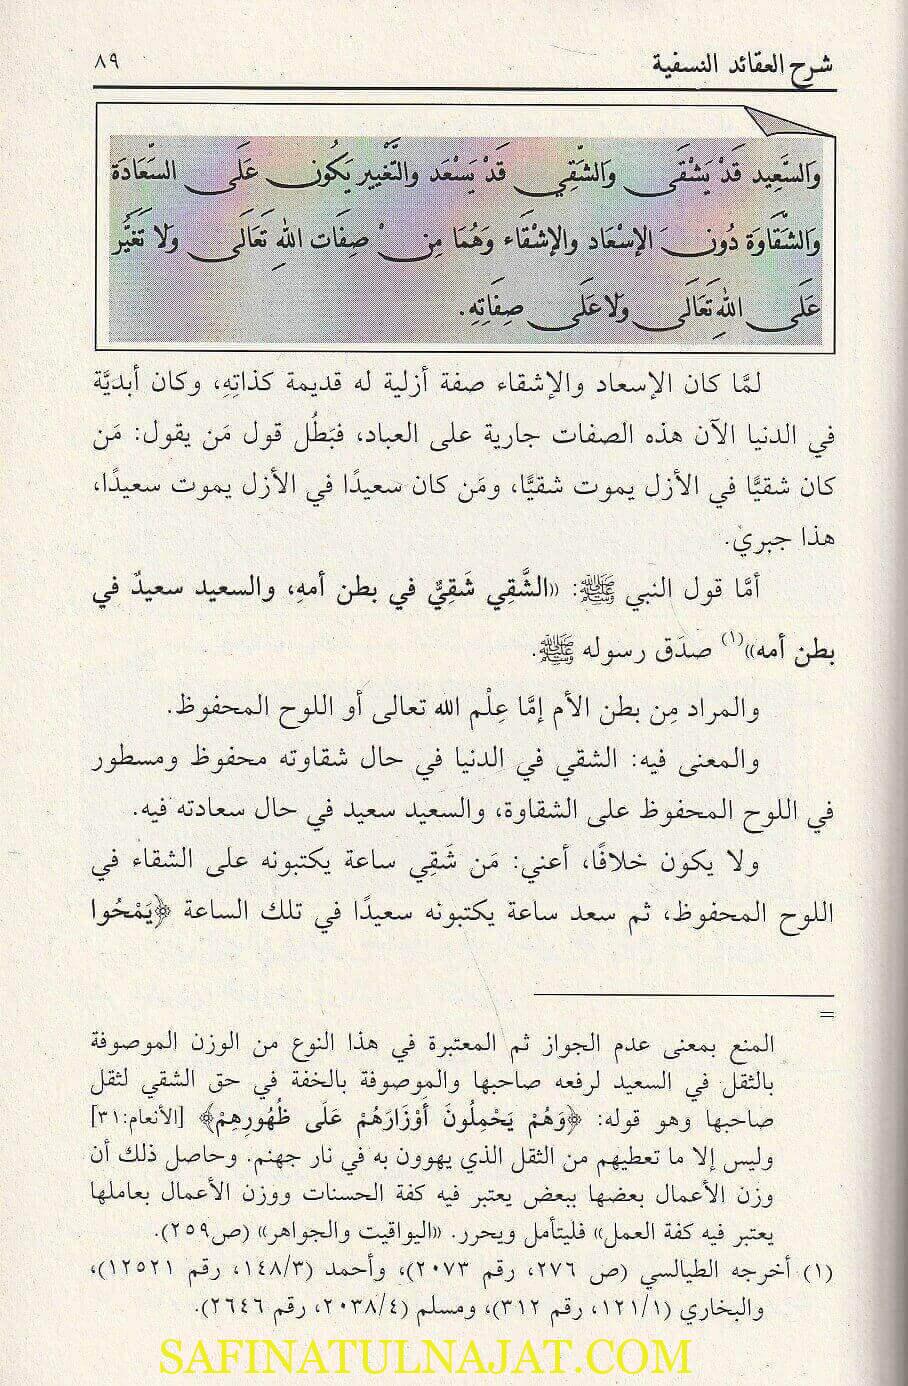 شرح العقائد النسفية ٨٩
وَالسَّعِيد قَدْ يَشْقَى وَالشَّقِي قَدْ يَسْعَد والتَّغْيِير يَكُون عَلَى السَّعَادَة
وَالشَّقَاوَة دُونَ الإسْعَاد والإشْقَاء وَهُمَا مِنْ صِفَات اللهِ تَعَالَى وَلا تَغَيُّر
عَلَى اللهِ تَعَالَى وَلا عَلَى صِفَاتِهِ.
لمَّا كان الإسعاد والإشقاء صفة أزلية له قديمة كذاتِهِ، وكان أبديَّة
في الدنيا الآن هذه الصفات جارية على العباد، فبَطُل قول مَن يقول: مَن
كان شقيًّا في الأزل يموت شقيًّا، ومَن كان سعيدًا في الأزل يموت سعيدًا،
هذا جبري.
أمَّا قول النبي ﷺ: «الشَّقِي شَقِيٌّ في بطن أمهِ، والسعيد سعيدٌ في
بطن أمه»(١) صدَق رسوله ﷺ.
والمراد مِن بطن الأم إمَّا عِلْم الله تعالى أو اللوح المحفوظ.
والمعنى فيه: الشقي في الدنيا في حال شقاوته محفوظ ومسطور
في اللوح المحفوظ على الشقاوة، والسعيد سعيد في حال سعادته فيه.
ولا يكون خلافًا، أعني: مَن شَقِي ساعة يكتبونه على الشقاء في
اللوح المحفوظ، ثم سعد ساعة يكتبونه سعيدًا في تلك الساعة ﴿يَمْحُوا
=
المنع بمعنى عدم الجواز ثم المعتبرة في هذا النوع من الوزن الموصوفة
بالثقل في السعيد لرفعه صاحبها والموصوفة بالخفة في حق الشقي لثقل
صاحبها وهو قوله: ﴿وَهُمْ يَحْمِلُونَ أَوْزَارَهُمْ عَلَى ظُهُورِهِمْ﴾ [الأنعام:٣١]
وليس إلا ما تعطيهم من الثقل الذي يهوون به في نار جهنم. وحاصل ذلك أن
وزن الأعمال بعضها ببعض يعتبر فيه كفة الحسنات ووزن الأعمال بعاملها
يعتبر فيه كفة العمل» فليتأمل ويحرر. «اليواقيت والجواهر» (ص٢٥٩).
(١) أخرجه الطيالسي (ص ٢٧٦، رقم ٢٠٧٣)، وأحمد (١٤٨/٣، رقم ١٢٥٢١)،
والبخاري (١٢١/١، رقم ٣١٢)، ومسلم (٢٠٣٨/٤، رقم ٢٦٤٦).
SAFINATULNAJAT.COM